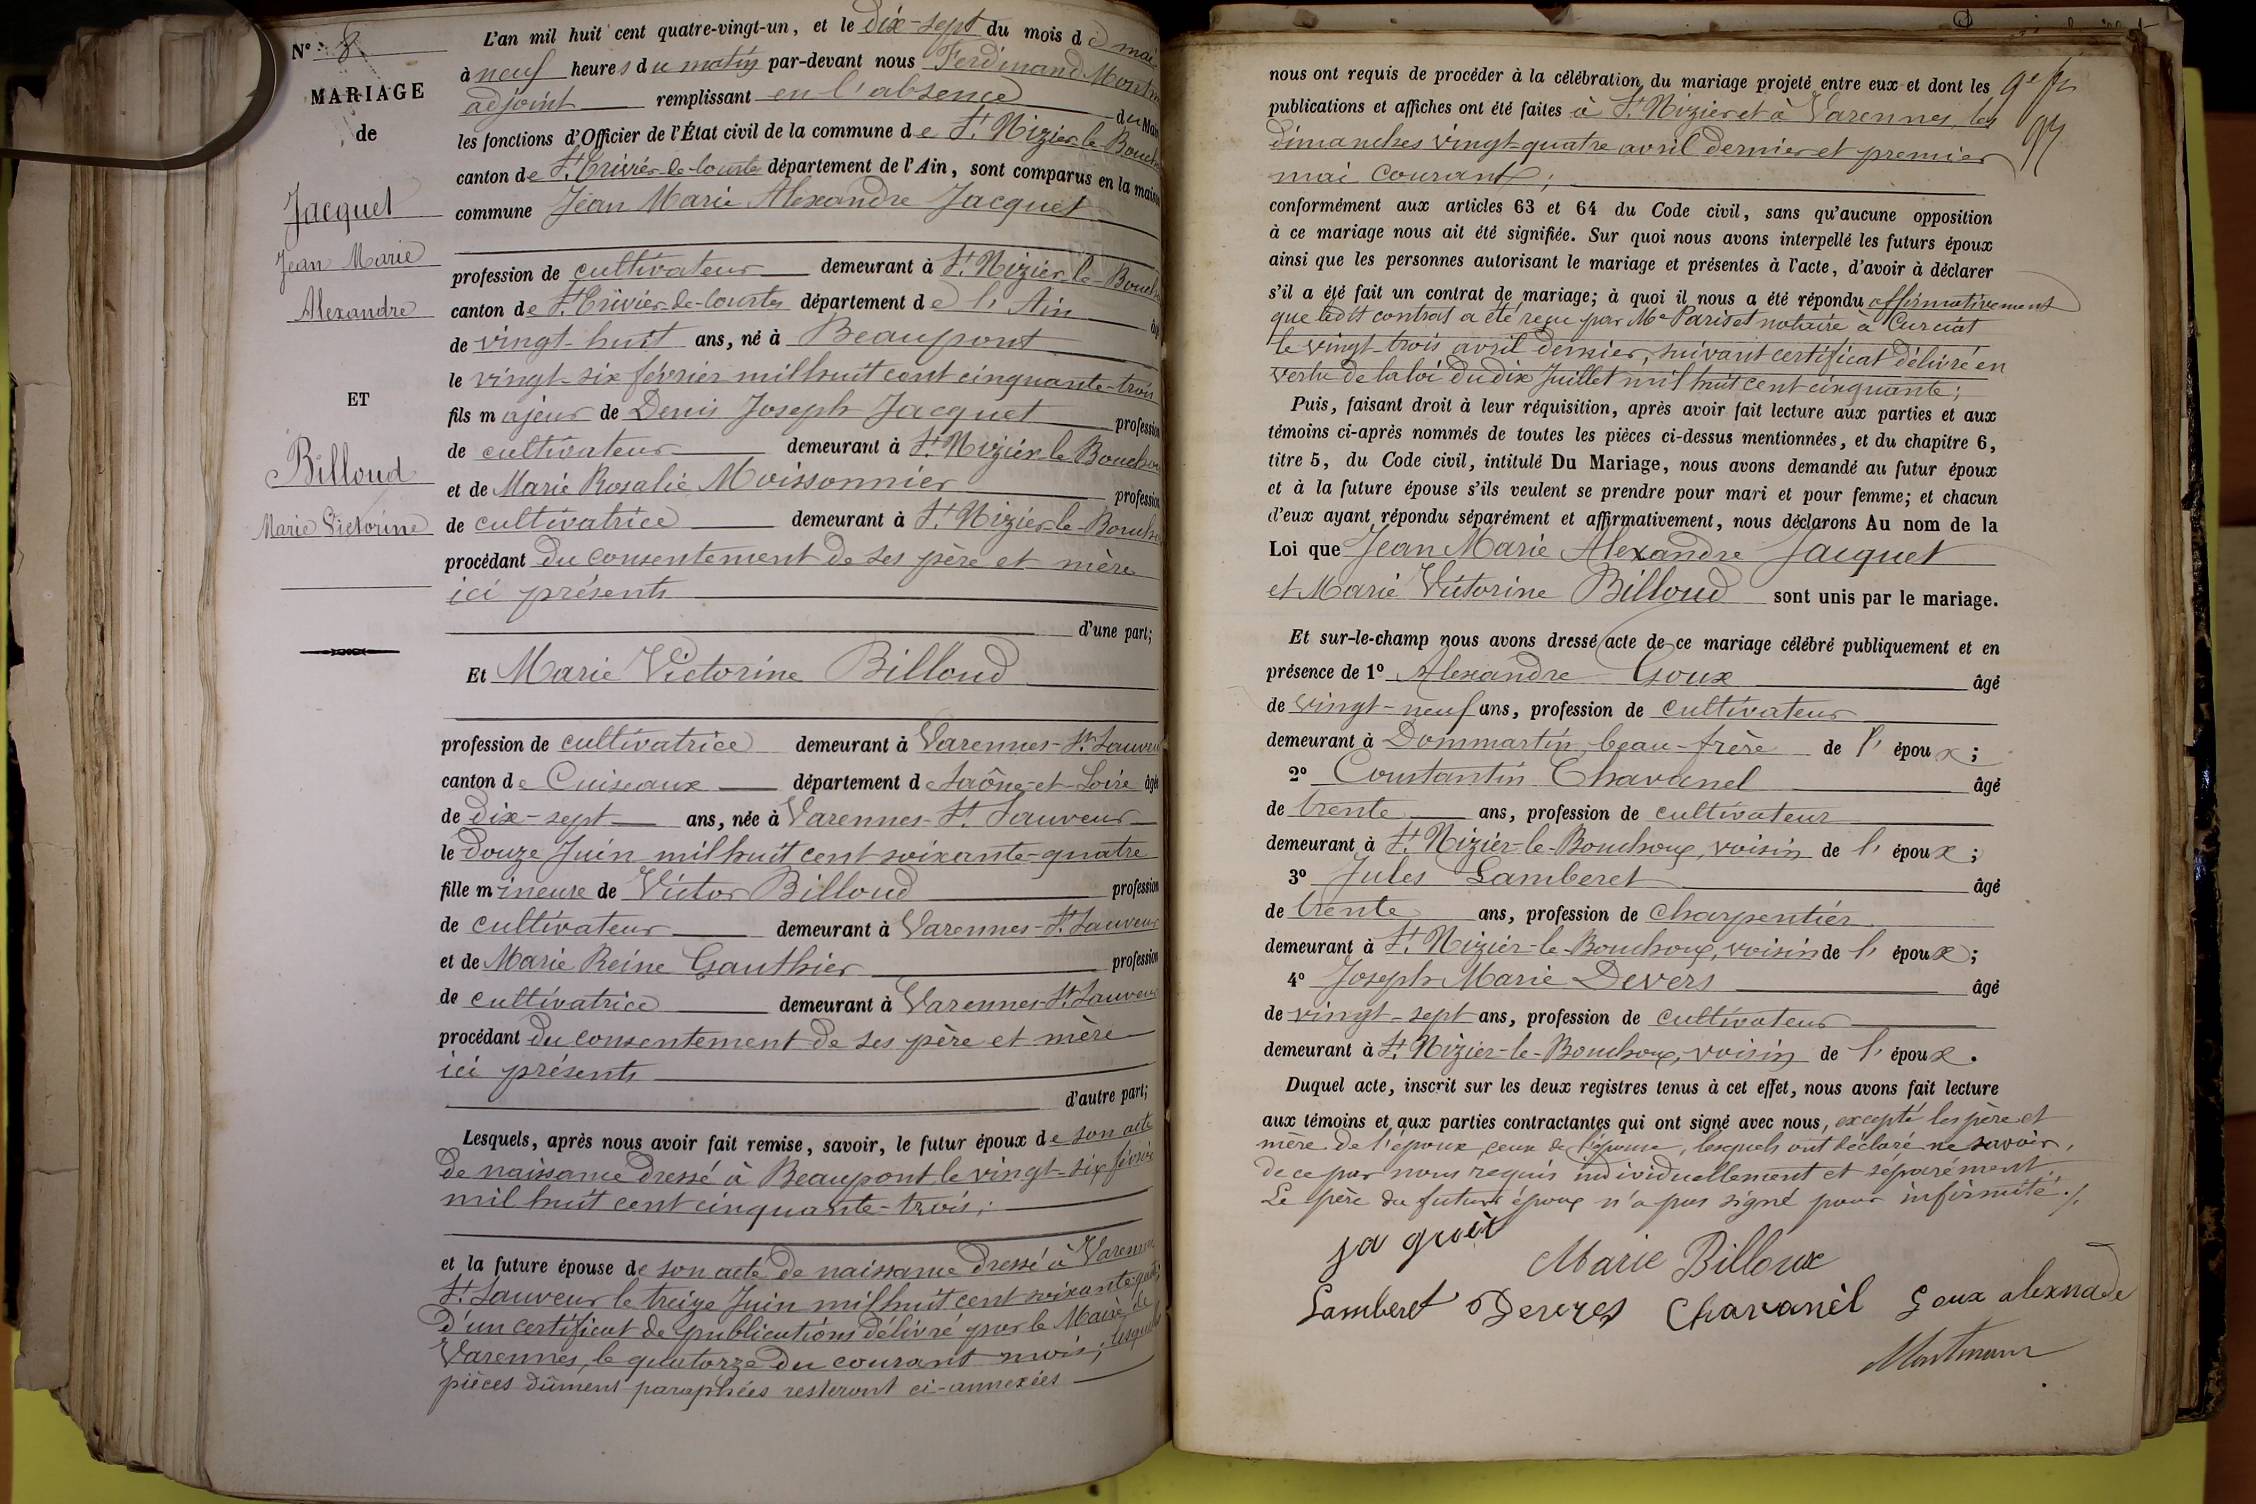 N° 8
MARIAGE
de
Jacquet
Jean Marie
Alexandre
ET
Billoud
Marie Victorine
L'an mil huit cent quatre-vingt-un, et le dix-sept du mois de mai
à neuf heures du matin par-devant nous Ferdinand
adjoint remplissant en l'absence du
les fonctions d'Officier de l'État civil de la commune de St Nizier-le-Bouchoux
canton de St Trivier-de-Courtes département de l'Ain, sont comparus en la maison
commune Jean Marie Alexandre Jacquet
profession de cultivateur demeurant à St Nizier-le-Bouchoux
canton de St Trivier-de-Courtes département de l'Ain âgé
de vingt-huit ans, né à Beaupont
le vingt-six février mil huit cent cinquante-trois
fils majeur de Denis Joseph Jacquet profession
de cultivateur demeurant à St Nizier-le-Bouchoux
et de Marie Rosalie Moissonnier profession
de cultivatrice demeurant à St Nizier-le-Bouchoux
procédant du consentement de ses père et mère
ici présents
d'une part;
Et Marie Victorine Billoud
profession de cultivatrice demeurant à Varennes-St Sauveur
canton de Cuiseaux département de Saône-et-Loire âgée
de dix-sept ans, née à Varennes-St Sauveur
le douze Juin mil huit cent soixante-quatre
fille mineure de Victor Billoud profession
de cultivateur demeurant à Varennes-St Sauveur
et de Marie Reine Gauthier profession
de cultivatrice demeurant à Varennes-St Sauveur
procédant du consentement de ses père et mère
ici présents
d'autre part;
Lesquels, après nous avoir fait remise, savoir, le futur époux de son acte
de naissance dressé à Beaupont le vingt-six février
mil huit cent cinquante-trois;
et la future épouse de son acte de naissance dressé à Varennes
St Sauveur le treize Juin mil huit cent soixante-quatre;
d'un certificat de publications délivré par le Maire de
Varennes, le quatorze du courant mois; lesquelles
pièces dûment paraphées resteront ci-annexées
nous ont requis de procéder à la célébration du mariage projeté entre eux et dont les
publications et affiches ont été faites à St Nizier et à Varennes, les
dimanches vingt-quatre avril dernier et premier
mai courant;
conformément aux articles 63 et 64 du Code civil, sans qu'aucune opposition
à ce mariage nous ait été signifiée. Sur quoi nous avons interpellé les futurs époux
ainsi que les personnes autorisant le mariage et présentes à l'acte, d'avoir à déclarer
s'il a été fait un contrat de mariage; à quoi il nous a été répondu affirmativement
que ledit contrat a été reçu par Me Pariset notaire à Curciat
le vingt-trois avril dernier, suivant certificat délivré en
vertu de la loi du dix Juillet mil huit cent cinquante;
Puis, faisant droit à leur réquisition, après avoir fait lecture aux parties et aux
témoins ci-après nommés de toutes les pièces ci-dessus mentionnées, et du chapitre 6,
titre 5, du Code civil, intitulé Du Mariage, nous avons demandé au futur époux
et à la future épouse s'ils veulent se prendre pour mari et pour femme; et chacun
d'eux ayant répondu séparément et affirmativement, nous déclarons Au nom de la
Loi que Jean Marie Alexandre Jacquet
et Marie Victorine Billoud sont unis par le mariage.
Et sur-le-champ nous avons dressé acte de ce mariage célébré publiquement et en
présence de 1° Alexandre Goux âgé
de vingt-neuf ans, profession de cultivateur
demeurant à Dommartin, beau-frère de l'époux;
2° Constantin Chavanel âgé
de trente ans, profession de cultivateur
demeurant à St Nizier-le-Bouchoux, voisin de l'époux;
3° Jules Lamberet âgé
de trente ans, profession de charpentier
demeurant à St Nizier-le-Bouchoux, voisin de l'époux;
4° Joseph Marie Devers âgé
de vingt-sept ans, profession de cultivateur
demeurant à St Nizier-le-Bouchoux, voisin de l'époux.
Duquel acte, inscrit sur les deux registres tenus à cet effet, nous avons fait lecture
aux témoins et aux parties contractantes qui ont signé avec nous, excepté les père et
mère de l'époux, ceux de l'épouse, lesquels ont déclaré ne savoir,
de ce par nous requis individuellement et séparément.
Le père du futur époux n'a pas signé pour infirmité.
Marie Billoux
Lamberet Chavanèl Goux alexnade